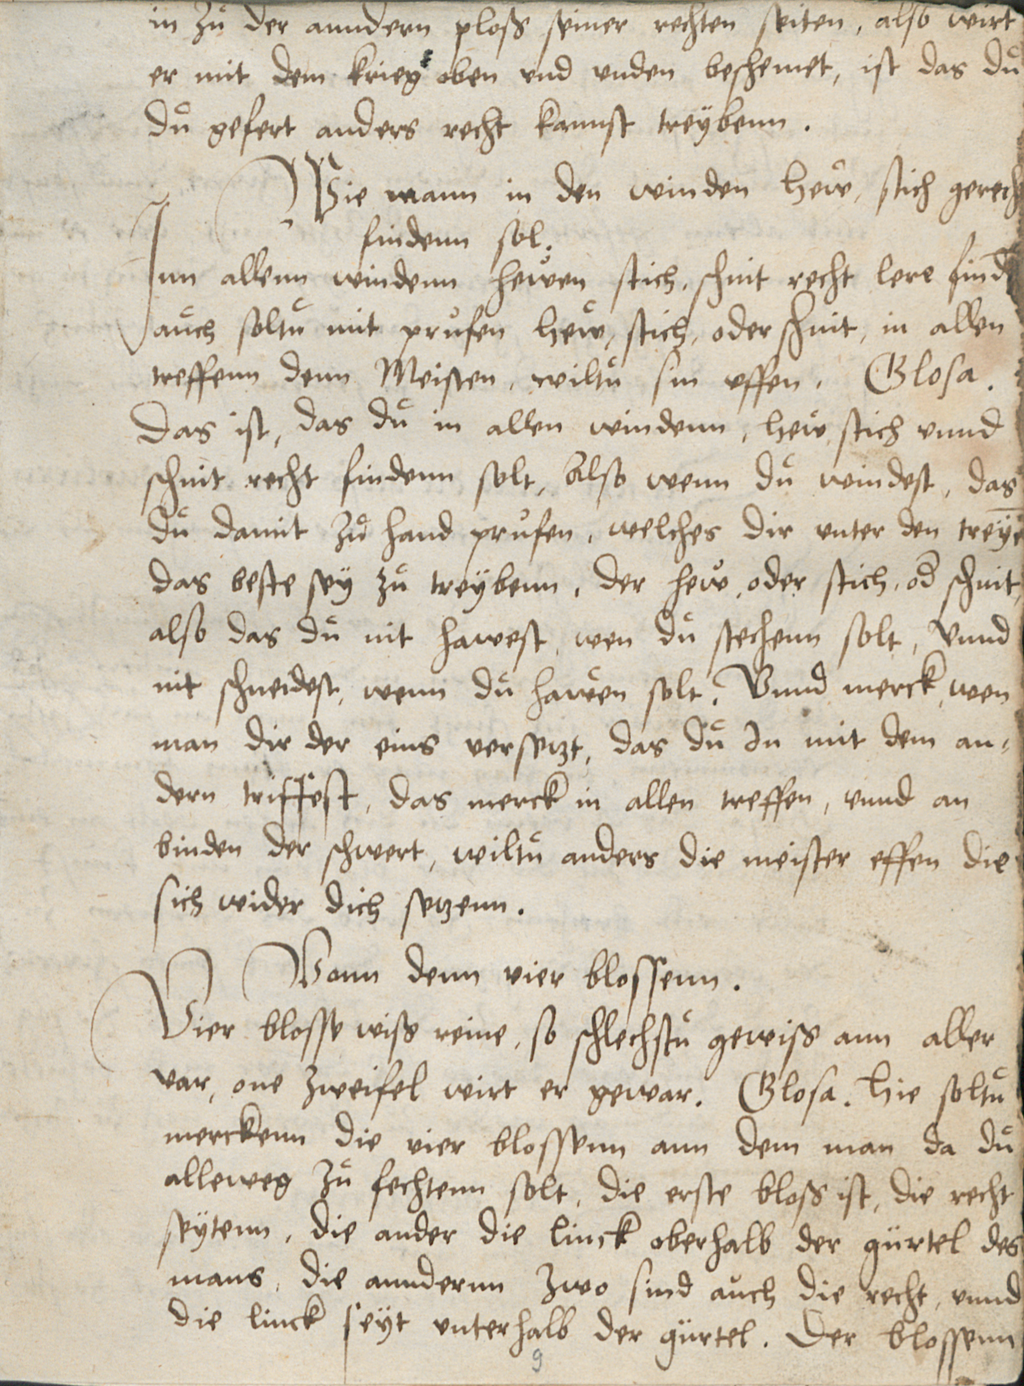 in zů der anndern ploß seiner rechten seiten, also wirt
er mit dem krieg oben vnd vnden beschemet, ist das dů
dů gefert anders recht kannst treÿbenn.
Wie mann in den winden hew, stich gerech
findenn sol.
Inn allenn windenn hewen stich, schnit recht lere find
auch soltů mit průfen hew, stich, oder schnit, in allen
treffenn denn Meisten, wiltů sin effen. Glosa.
Das ist, das dů in allen windenn, hew stich vnnd
schnit recht findenn solt, Also wenn dů windest, das
dů damit zů hand průfen, welches dir unter den treÿe
das beste seÿ zů treÿbenn, der hew, oder stich, od schnit,
also das dů nit hawest, wen dů stechenn solt, Vnnd
nit schneidest, wenn dů hawen solt. Vnnd merck, wen
man dir der eins versetzt, das dů In mit dem an-
dern triffest, das merck in allen treffen, vnnd an
binden der schwert, wiltů anders die meister effen die
sich wider dich setzenn.
Vonn denn vier blossenn.
Vier blosse wiß reine, so schlechstů gewiß ann aller
var, one zweifel wirt er gewar. Glosa. hie soltů
merckenn die vier blossenn ann dem man da dů
alleweg zů fechtenn solt, die erste bloß ist, die recht
seÿtenn, die ander die linck oberhalb der gürtel des
mans, die anndernn zwo sind auch die recht, vnnd
die linck seÿt vnterhalb der gürtel. Der blossenn
9